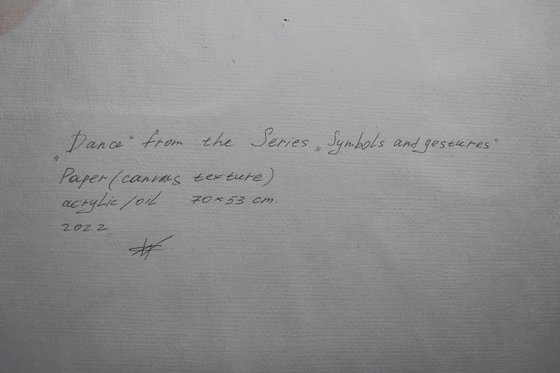 „Dance" from the Series „Symbols and gestures"
Paper (canvas texture)
acrylic/oil 70×53 cm.
2022